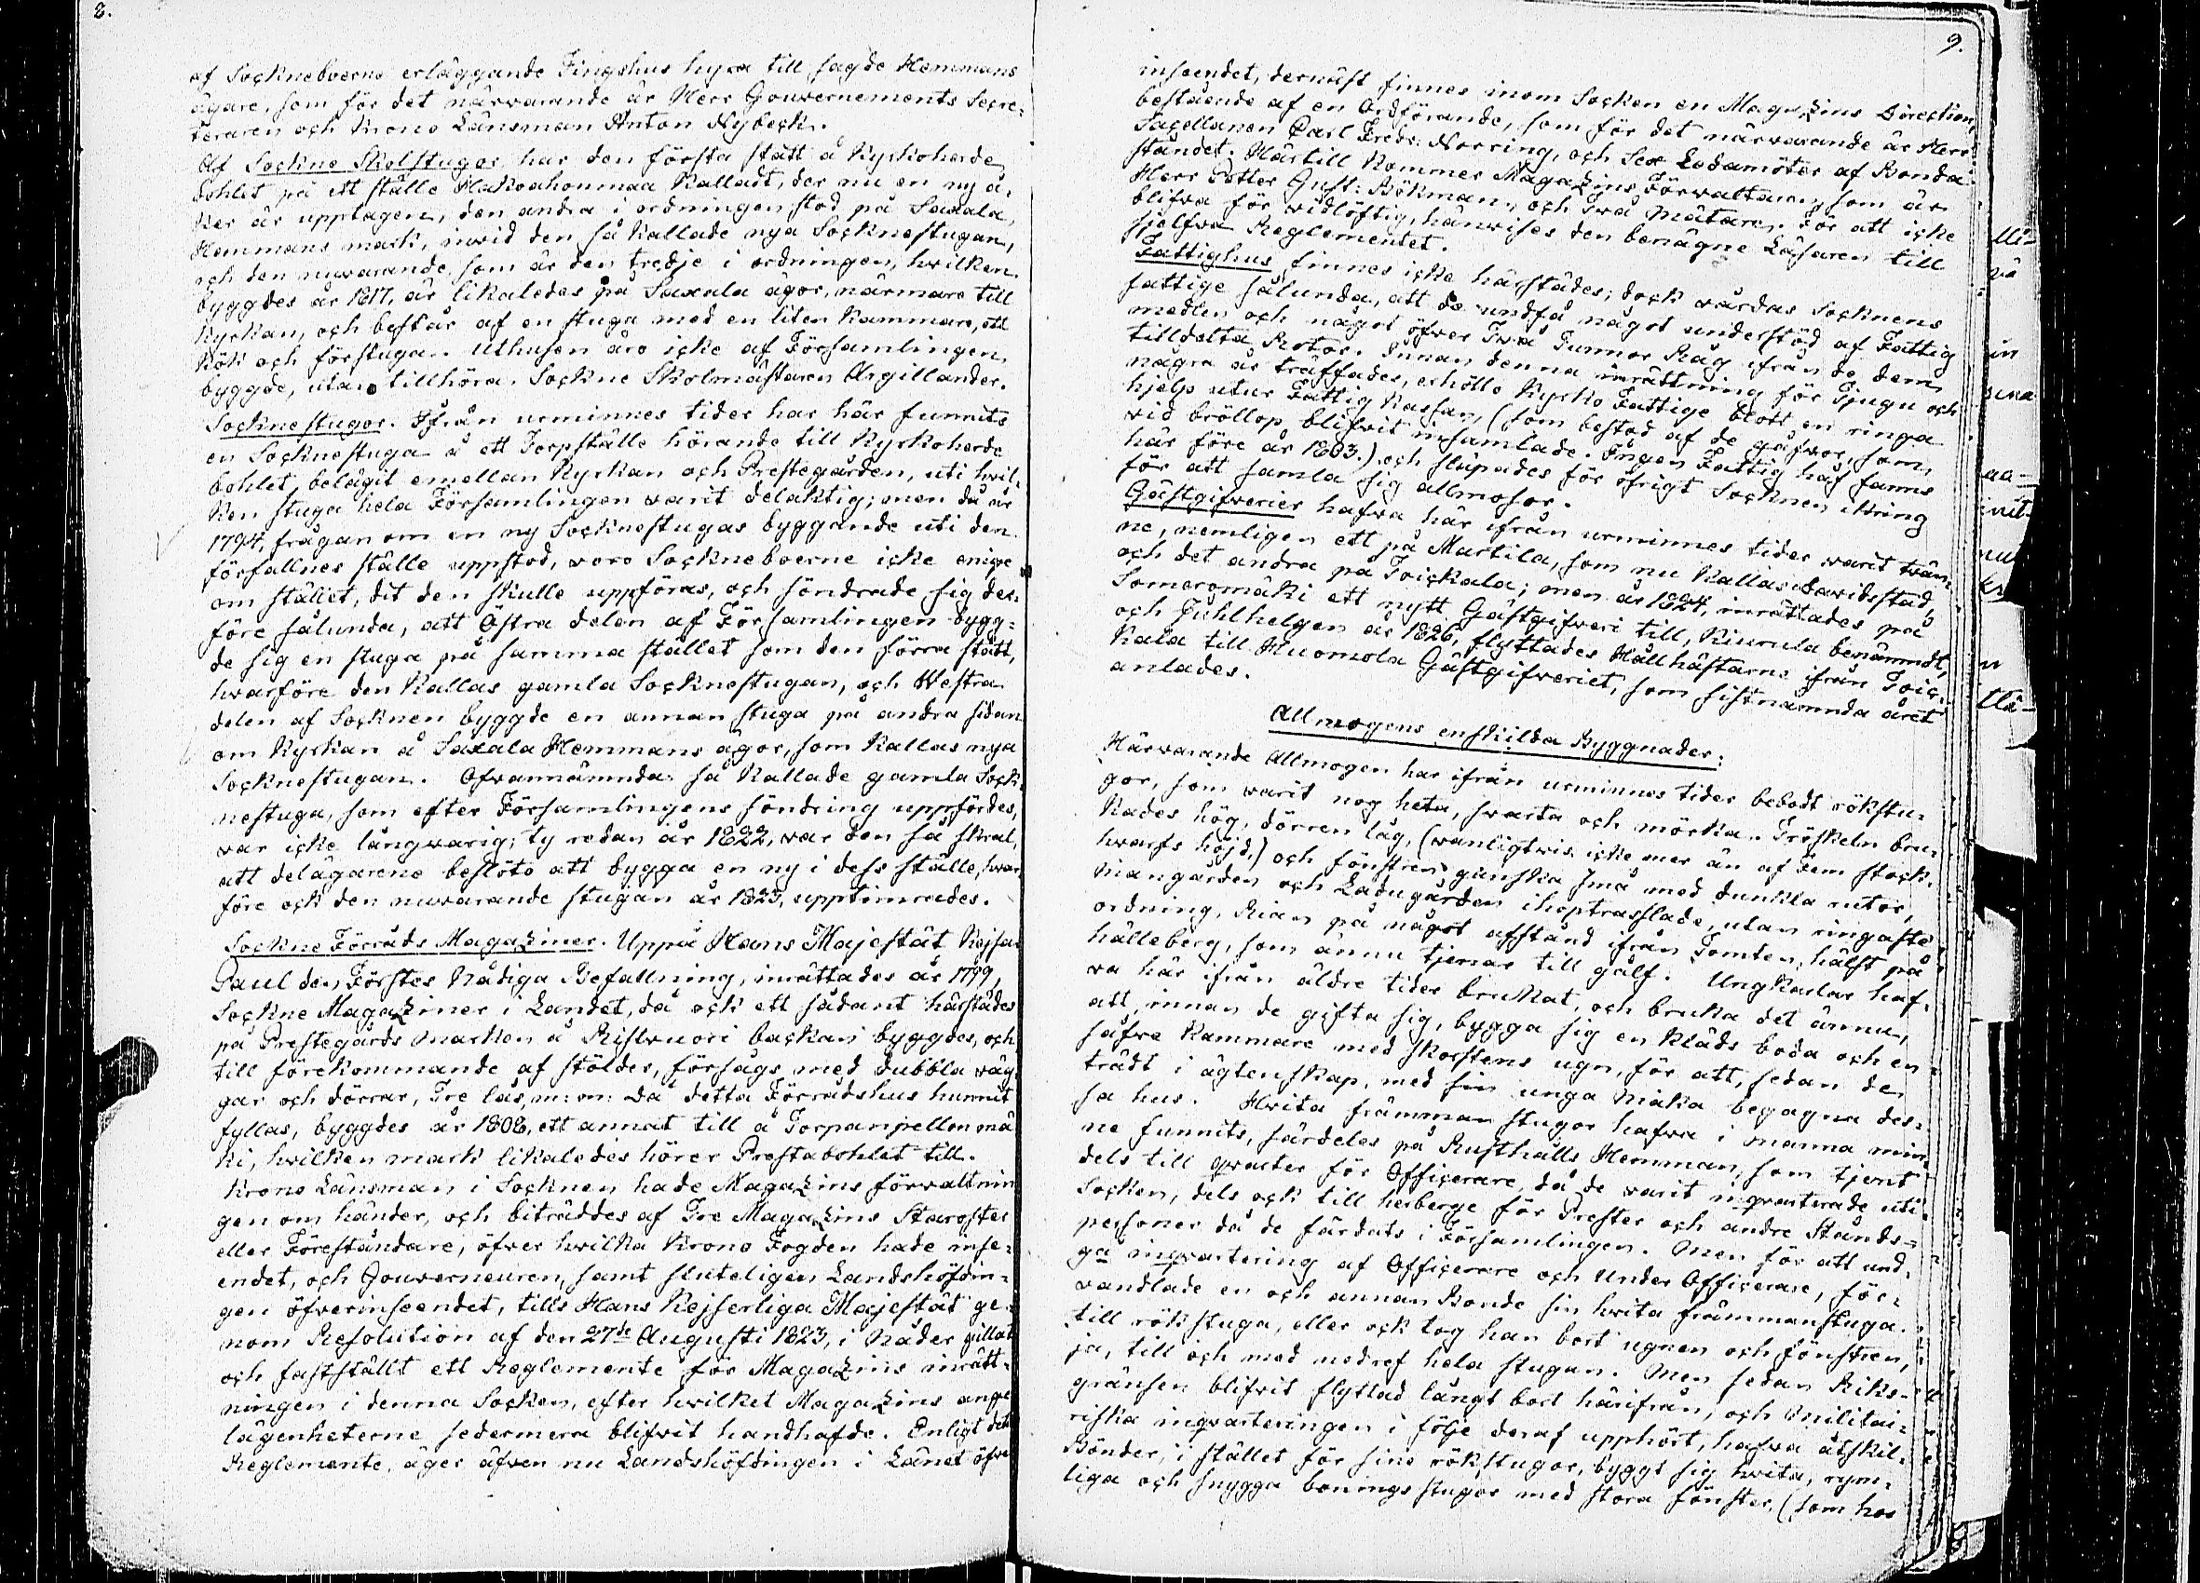 8.
af Sockneboerne erläggande Tingshus hyra till sagde Hemmans
ägare, som för det närwarande är Herr Gouvernements Secre-
teraren och Krono Länsman Anton Nybeck.
Af Sockne Skolstugor har den första stått å Kyrkoherde
bohlet på ett ställe Hakoahonmaa Kalladt, der nu en ny å-
ker är upptagen, den andra i ordningen stod på Saxala
Hemmans mark, inwid den så Kallade nya Socknestugan,
och den nuwarande, som är den tredje i ordningen, hwilken
byggdes år 1817, är likaledes på Saxala ägor, närmare till
Kyrkan, och består af en stuga med en liten Kammare, ett
Kök och förstugan. Uthusen äro icke af Församlingen
byggde, utan tillhöra Sockne Skolmästaren Argillander.
Socknestugor. Ifrån urminnes tider har här funnits
en Socknestuga å ett Torpställe hörande till Kyrkoherde
bohlet, belägit emellan Kyrkan och Prestegården, uti hwil-
ken stuga hela Församlingen warit delaktig; men då år
1794, frågan om en ny Socknestugas byggande uti den
förfallnes ställe uppstod, woro Sockneboerne icke enige
om stället, dit den skulle uppföras, och söndrade sig der-
före sålunda, att Östra delen af Församlingen bygg-
de sig en stuga på samma stället som den förra stått,
hwarföre den Kallas gamla Socknestugan, och Westra
delen af Socknen byggde en annan stuga på andra sidan
om Kyrkan å Saxala Hemmans ägor, som Kallas nya
Socknestugan. Ofwannämnda så Kallade gamla Sock-
nestuga, som efter Församlingens söndring uppfördes,
war icke långwarig; ty redan år 1822, war den så skral,
att delägarene beslöto att bygga en ny i dess ställe, hwar
före ock den nuwarande stugan år 1823, upptimrades.
Sockne Förråds Magaziner. Uppå Hans Majestät Kejsar
Paul den Förstes Nådiga Befallning, inrättades år 1799,
Sockne Magaziner i Landet, då ock ett sådant härstädes
på Prestegårds marken å Ristwuori backan byggdes, och
till förekommande af stölder, försågs med dubbla wäg
gar och dörrar, Tre lås, m: m: Då detta Förrådshus hunnit
fyllas, byggdes år 1808, ett annat till å Torpanpellon mä
ki, hwilken mark likaledes hörer Prestabohlet till.
Krono Länsman i Socknen hade Magazins förwaltnin
gen om händer, och biträddes af Tre Magazins Staroster
eller Föreståndare, öfwer hwilka Krono Fogden hade inse-
endet, och Gouverneuren, samt sluteligen Landshöfdin-
gen öfwerinseendet, tills Hans Kejserliga Majestät ge-
nom Resolution af den 27de Augusti 1823, i Nåder gillat
och fastställt ett Reglemente för Magazins inrätt-
ningen i denna Socken, efter hwilket Magazins ange
lägenheterne sedermera blifwit handhafde. Enligt det
Reglemente, äger äfwen nu Landshöfdingen i Länet öfwer
9.
inseendet, dernäst finnes inom Socken en Magazins Direction,
bestående af en Ordförande, som för det närwarande är Herr
Sacellanen Carl Fredr: Norring, och Sex Ledamöter af Bonda
ståndet. Härtill Kommer Magazins Förwaltaren, som är
Herr Petter Gust: Bökman, och Twå Mätare. För att icke
blifwa för widlöftig, hänwises den benägne Läsaren till
sjelfwa Reglementet.
Fattighus finnes icke härstädes; dock wårdas Socknens
fattige sålunda, att de undfå något understöd af Fattig
medlen och något öfwer Twå Tunnor Råg ifrån de dem
tilldelta Rotor. Innan denna inrättning för Tjugu och
några år träffades, erhöllo Kyrko Fattige blott en ringa
hjelp utur Fattig Kassan, (som bestod af de gåfwor, som
wid bröllop blifwit insamlade. Ingen Fattig håf fanns
här före år 1803.) och släpades för öfrigt Socknen ikring
för att samla sig allmosor.
Gästgifwerier hafwa här ifrån urminnes tider warit twän-
ne, nemligen ett på Martila, som nu Kallas Davidsstad,
och det andra på Toickala; men år 1824, inrättades på
Someromäki ett nytt Gästgifweri till, Kiurula benämndt,
och Juhlhelgen år 1826, flyttades Hållhästarne ifrån Toic-
kala till Muomola Gästgifweriet, som sistnämnda året
anlades.
Allmogens enskilda Byggnader.
Härwarande Allmogen har ifrån urminnes tider bebodt rökstu-
gor, som warit nog heta, swarta och mörka. Tröskeln bru-
kades hög, dörren låg, (wanligtwis icke mer än af Fem stock-
hwarfs höjd,) och fönstren ganska små med dunkla rutor,
Mangården och Ladugården ihoptrasslade, utan ringaste
ordning, Rian på något afstånd ifrån Tomten, hälst på
hälleberg, som ännu tjenar till gålf. Ungkarlar haf-
wa här ifrån äldre tider brukat, och bruka det ännu,
att, innan de gifta sig, bygga sig en kläds boda och en
säfre Kammare med skorstens ugn, för att, sedan de
trädt i ägtenskap, med sin unga Maka begagna des-
sa hus. Hwita främman stugor hafwa i manna min-
ne funnits, särdeles på Rusthålls Hemman, som tjent
dels till qwarter för Officerare, då de warit inqwarterade uti
Socken, dels ock till herberge för Prester och andre Stånds-
personer då de färdats i Församlingen. Men för att und-
gå inqwartering af Officerare och Under Officerare, för-
wandlade en och annan Bonde sin hwita främmanstuga
till rökstuga, eller ock tog han bort ugnen och fönstren,
ja, till och med nedref hela stugan. Men sedan Riks-
gränsen blifwit flyttad långt bort härifrån, och Militai-
riska inqwarteringen i följe deraf upphört, hafwa åtskil-
Bönder, i stället för sine rökstugor, byggt sig hwita, rym-
liga och snygga bonings stugor med stora fönster, (som hos